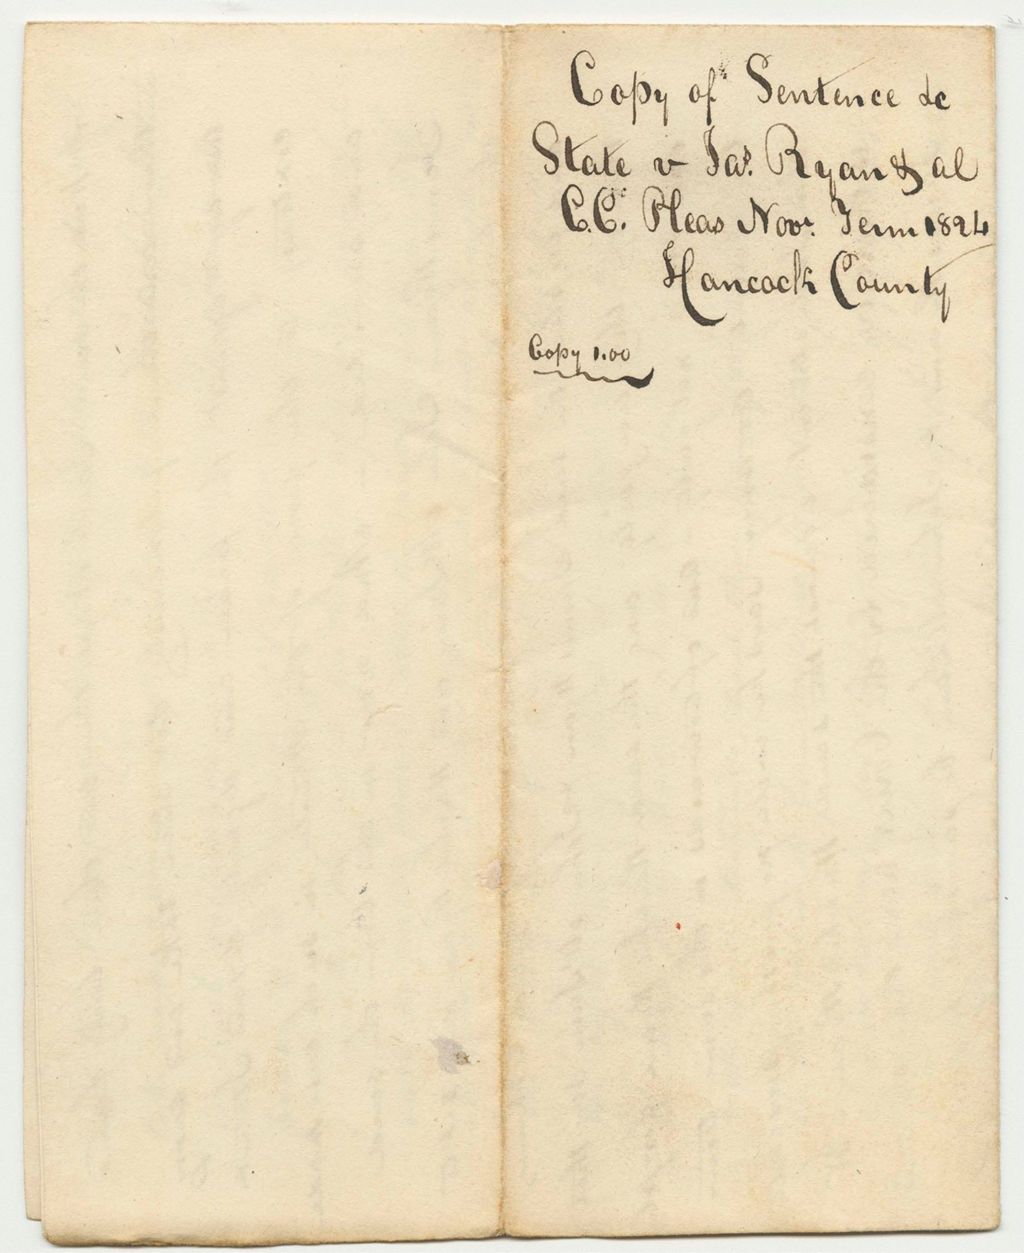 Copy of Sentence &c
State v Jas. Ryan & al
C.Ct. Pleas Novr. Term 1824
Hancock County
Copy 1.00